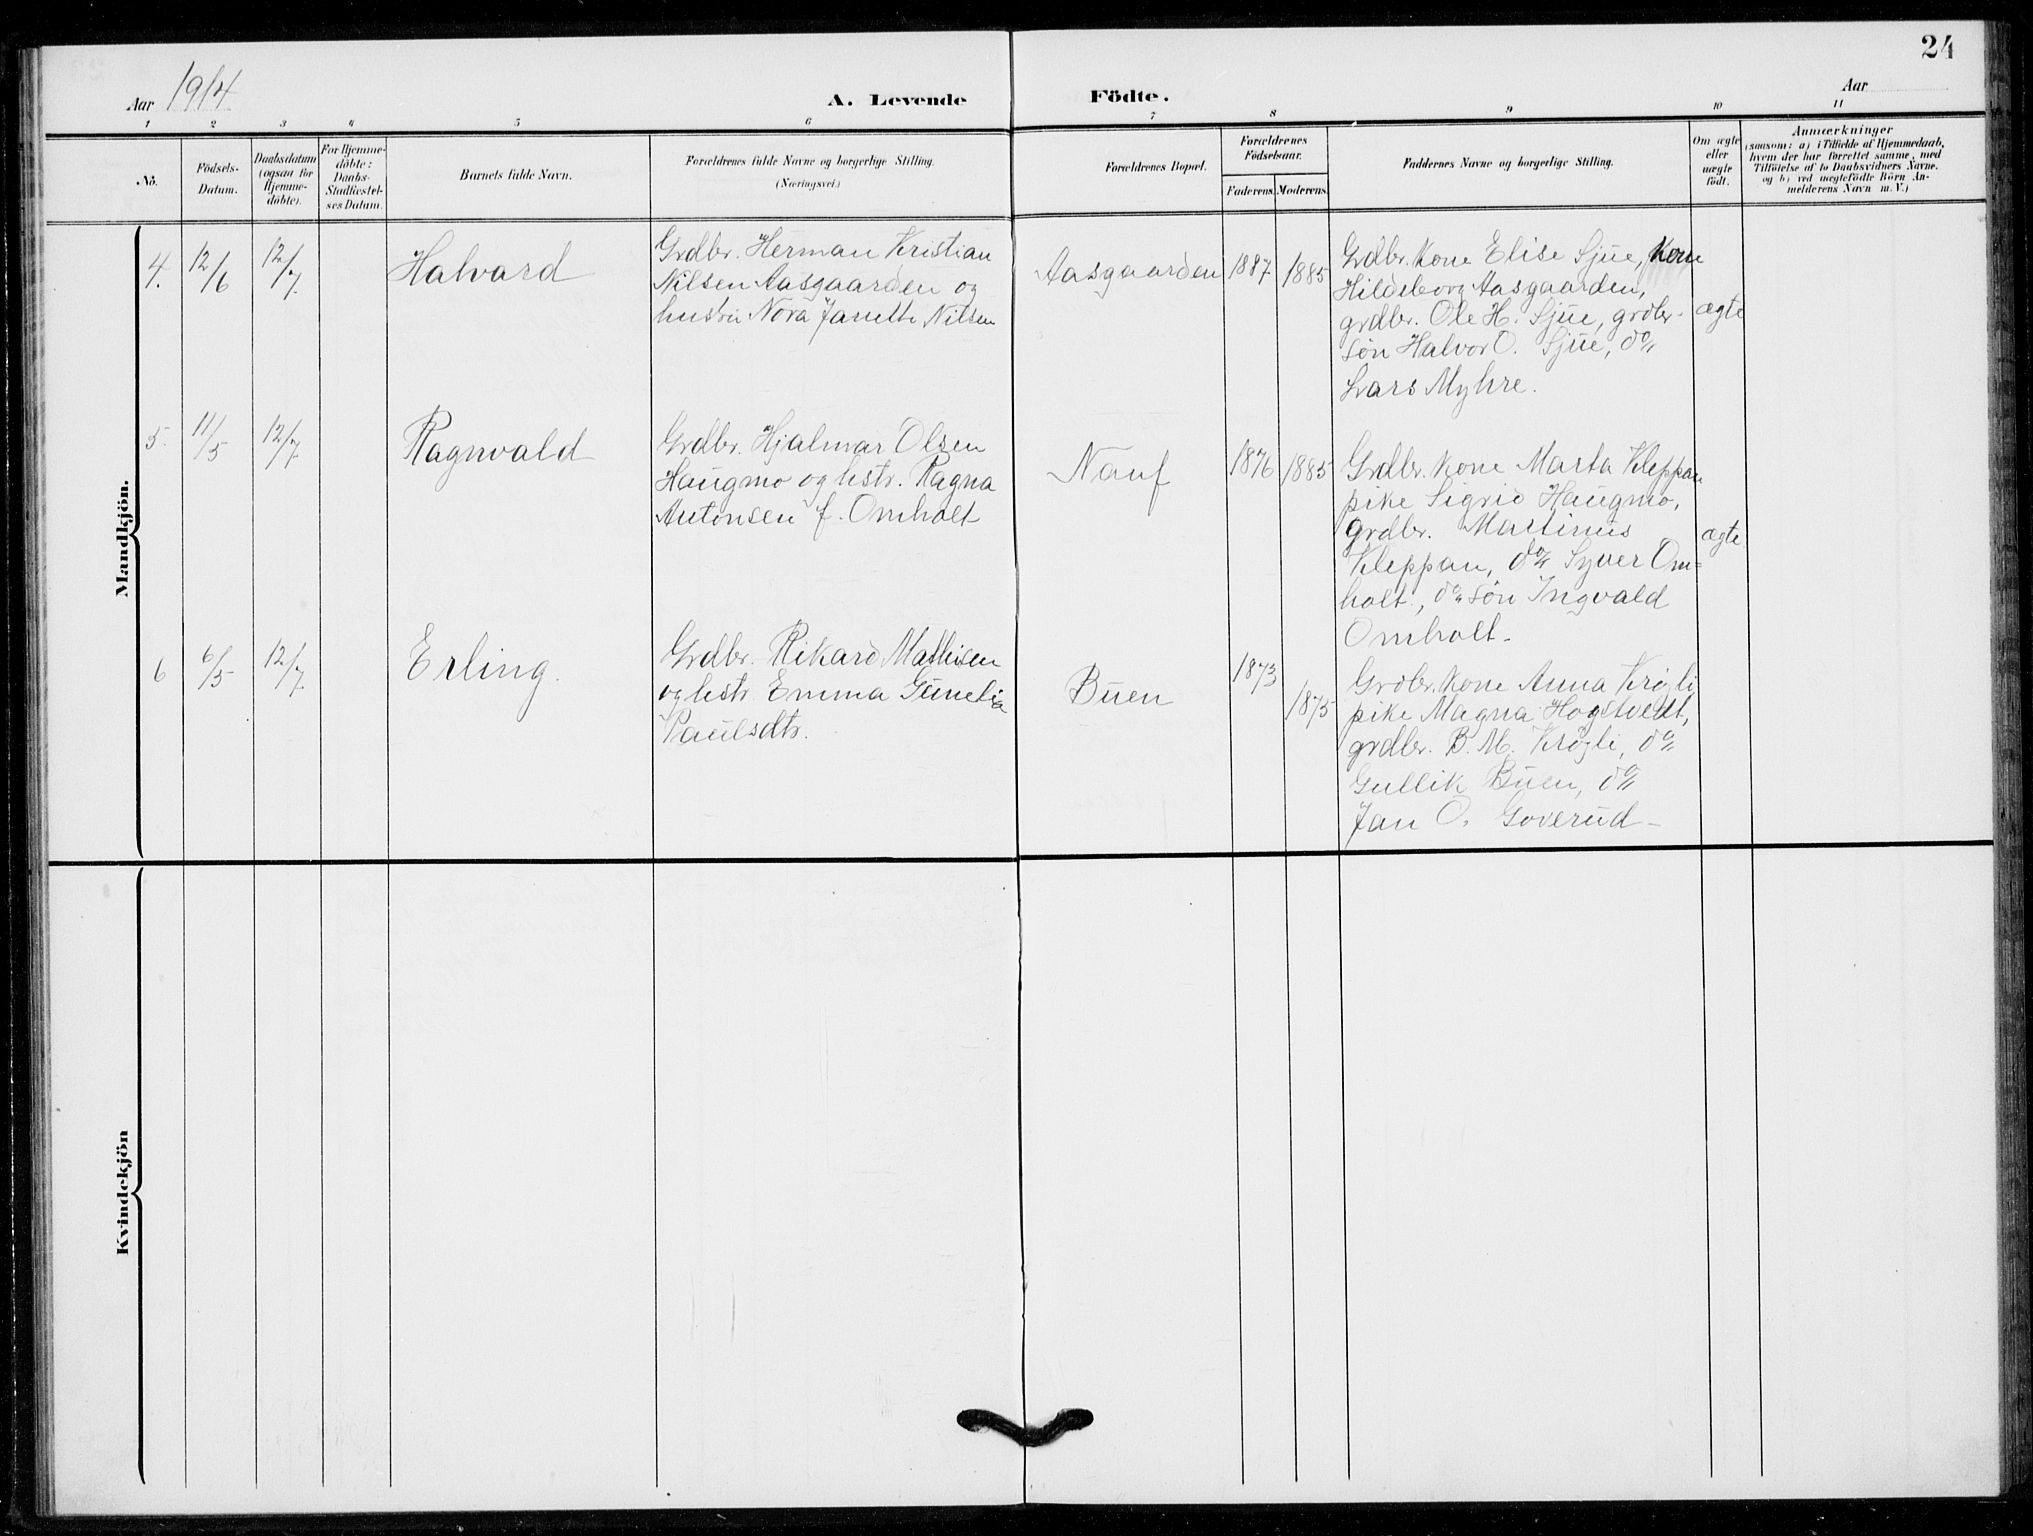 24
Aar 1914
A. Levende Födte.
Aar
1 2 3 4 5 6 7 8 9 10 11
No.
Födsels-
Datum.
Daabsdatum
(ogsaa for
Hjemme-
döbte).
For Hjemme-
döbte:
Daabs-
Stadfæstel-
ses Datum.
Barnets fulde Navn.
Forældrenes fulde Navne og borgerlige Stilling.
(Næringsvei.)
Forældrenes Bopæl.
Forældrenes
Födselsaar.
Faderens. Moderens.
Faddernes Navne og borgerlige Stilling.
Om ægte
eller
uægte
födt.
Anmærkninger
(saasom: a) i Tilfælde af Hjemmedaab,
hvem der har forrettet samme, med
Tilföielse af to Daabsvidners Navne.
og b) ved uægtefödte Börn An-
melderens Navn m. V.)
Mandkjön.
4. 12/6 12/7 Halvard
Grdbr. Herman Kristian
Nilsen Aasgaarden og
hustru Nora Janette Nilsen
Aasgaarden 1887 1885
Grdbr. kone Elise Sjue, kone
Hildeborg Aasgaarden,
grdbr. Ole H. Sjue, grdbr-
søn Halvor O. Sjue, do
Lars Myhre.
ægte
5. 11/5 12/7 Ragnvald
Grdbr. Hjalmar Olsen
Haugmo og hstr. Ragna
Antonsen f. Omholt
Nauf 1876 1885
Grdbr. kone Marta Kleppan
pike Sigrid Haugmo,
grdbr. Martinus
Kleppan, do Syver Om=
holt, do søn Ingvald
Omholt.
ægte
6 6/5 12/7 Erling.
Grdbr. Rikard Mathisen
og hstr. Emma Gunelia
Paulsdtr.
Buen 1873 1875
Grdbr. kone Anna Krøgli
pike Magna Hogstvedt,
grdbr. B. M. Krøgli, do
Gullik Buen, do
Jan O. Goverud
Kvindekjön